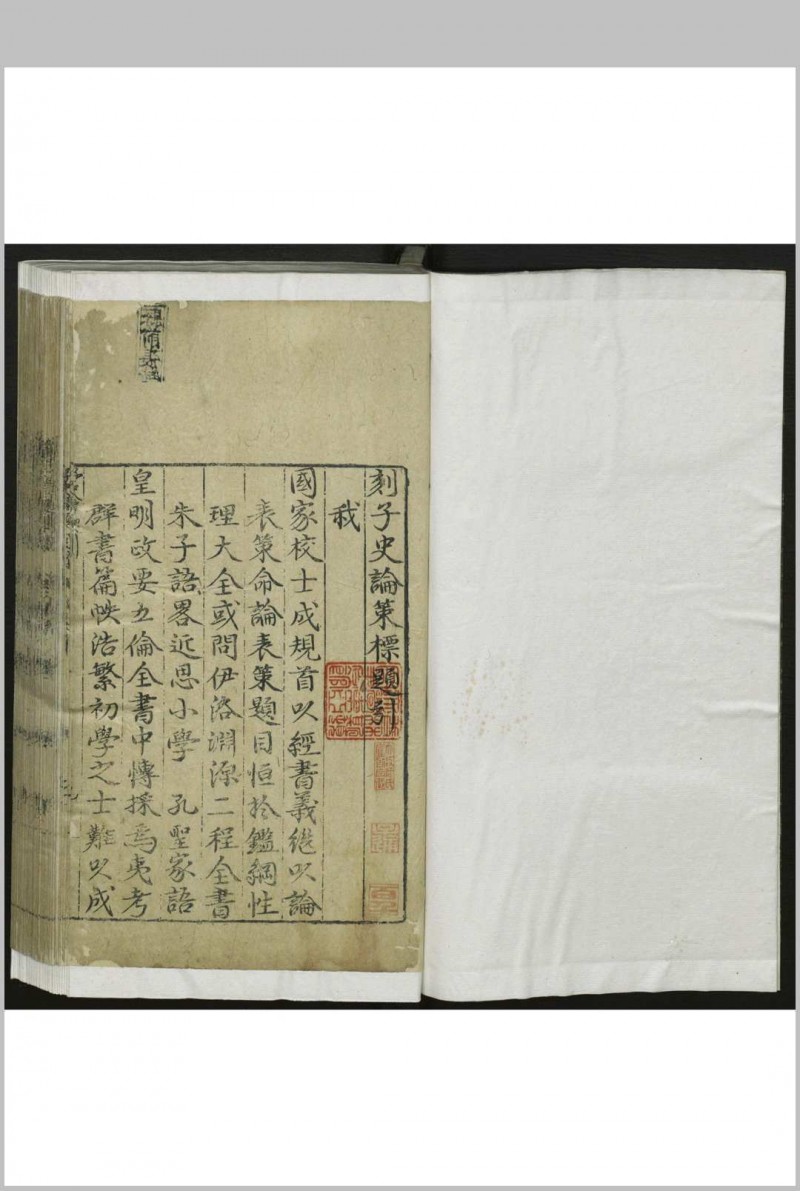 刻子史論策標題引
我
國家校士成規首以經書義继以論
表策命論表策題目恒於鑑綱性
理大全或問伊洛淵源二程全書
朱子語畧近思小學 孔聖家語
皇明政要五倫全書中慱採焉夷考
群書篇帙浩繁初學之士難以成